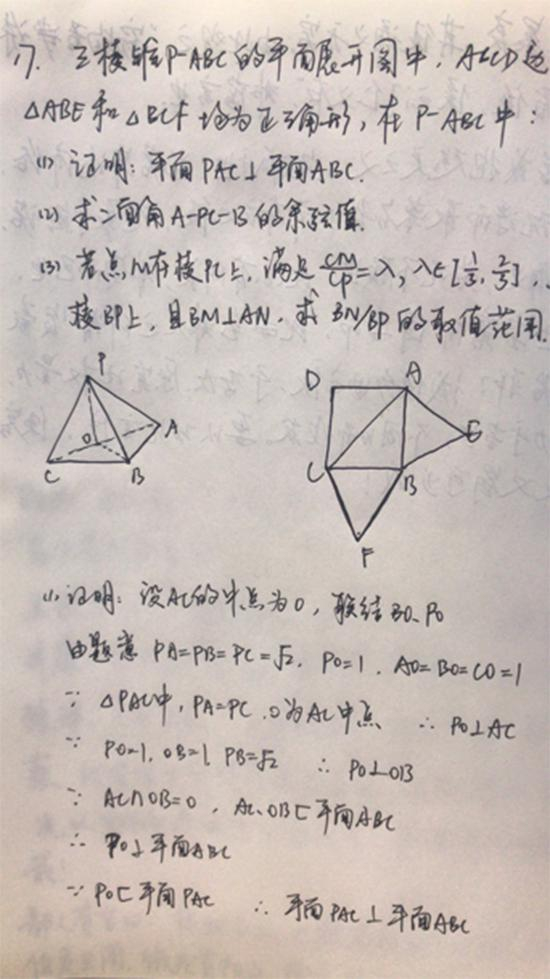 17. 三棱锥P-ABC的平面展开图中, ABCD是
△ABE和△BCF均为正三角形, 在P-ABC中:
(1) 证明: 平面PAC⊥平面ABC.
(2) 求二面角A-PC-B的余弦值.
(3) 若点M在棱PC上, 满足CM/CP=λ, λ∈[1/3, 2/3],
棱BP上, 且BM⊥AN, 求BN/BP的取值范围.
P
O
A
C
B
D
A
E
C
B
F
(1) 证明: 设AC的中点为O, 联结BO、PO
由题意 PA=PB=PC=√2, PO=1, AO=BO=CO=1
∵ △PAC中, PA=PC, O为AC中点 ∴ PO⊥AC
∵ PO=1, OB=1, PB=√2 ∴ PO⊥OB
∵ AC∩OB=O, AC、OB⊂平面ABC
∴ PO⊥平面ABC
∵ PO⊂平面PAC ∴ 平面PAC⊥平面ABC